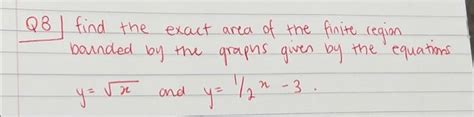 Q8 find the exact area of the finite region
bounded by the graphs given by the equations
y = √x and y = 1/2 x - 3.